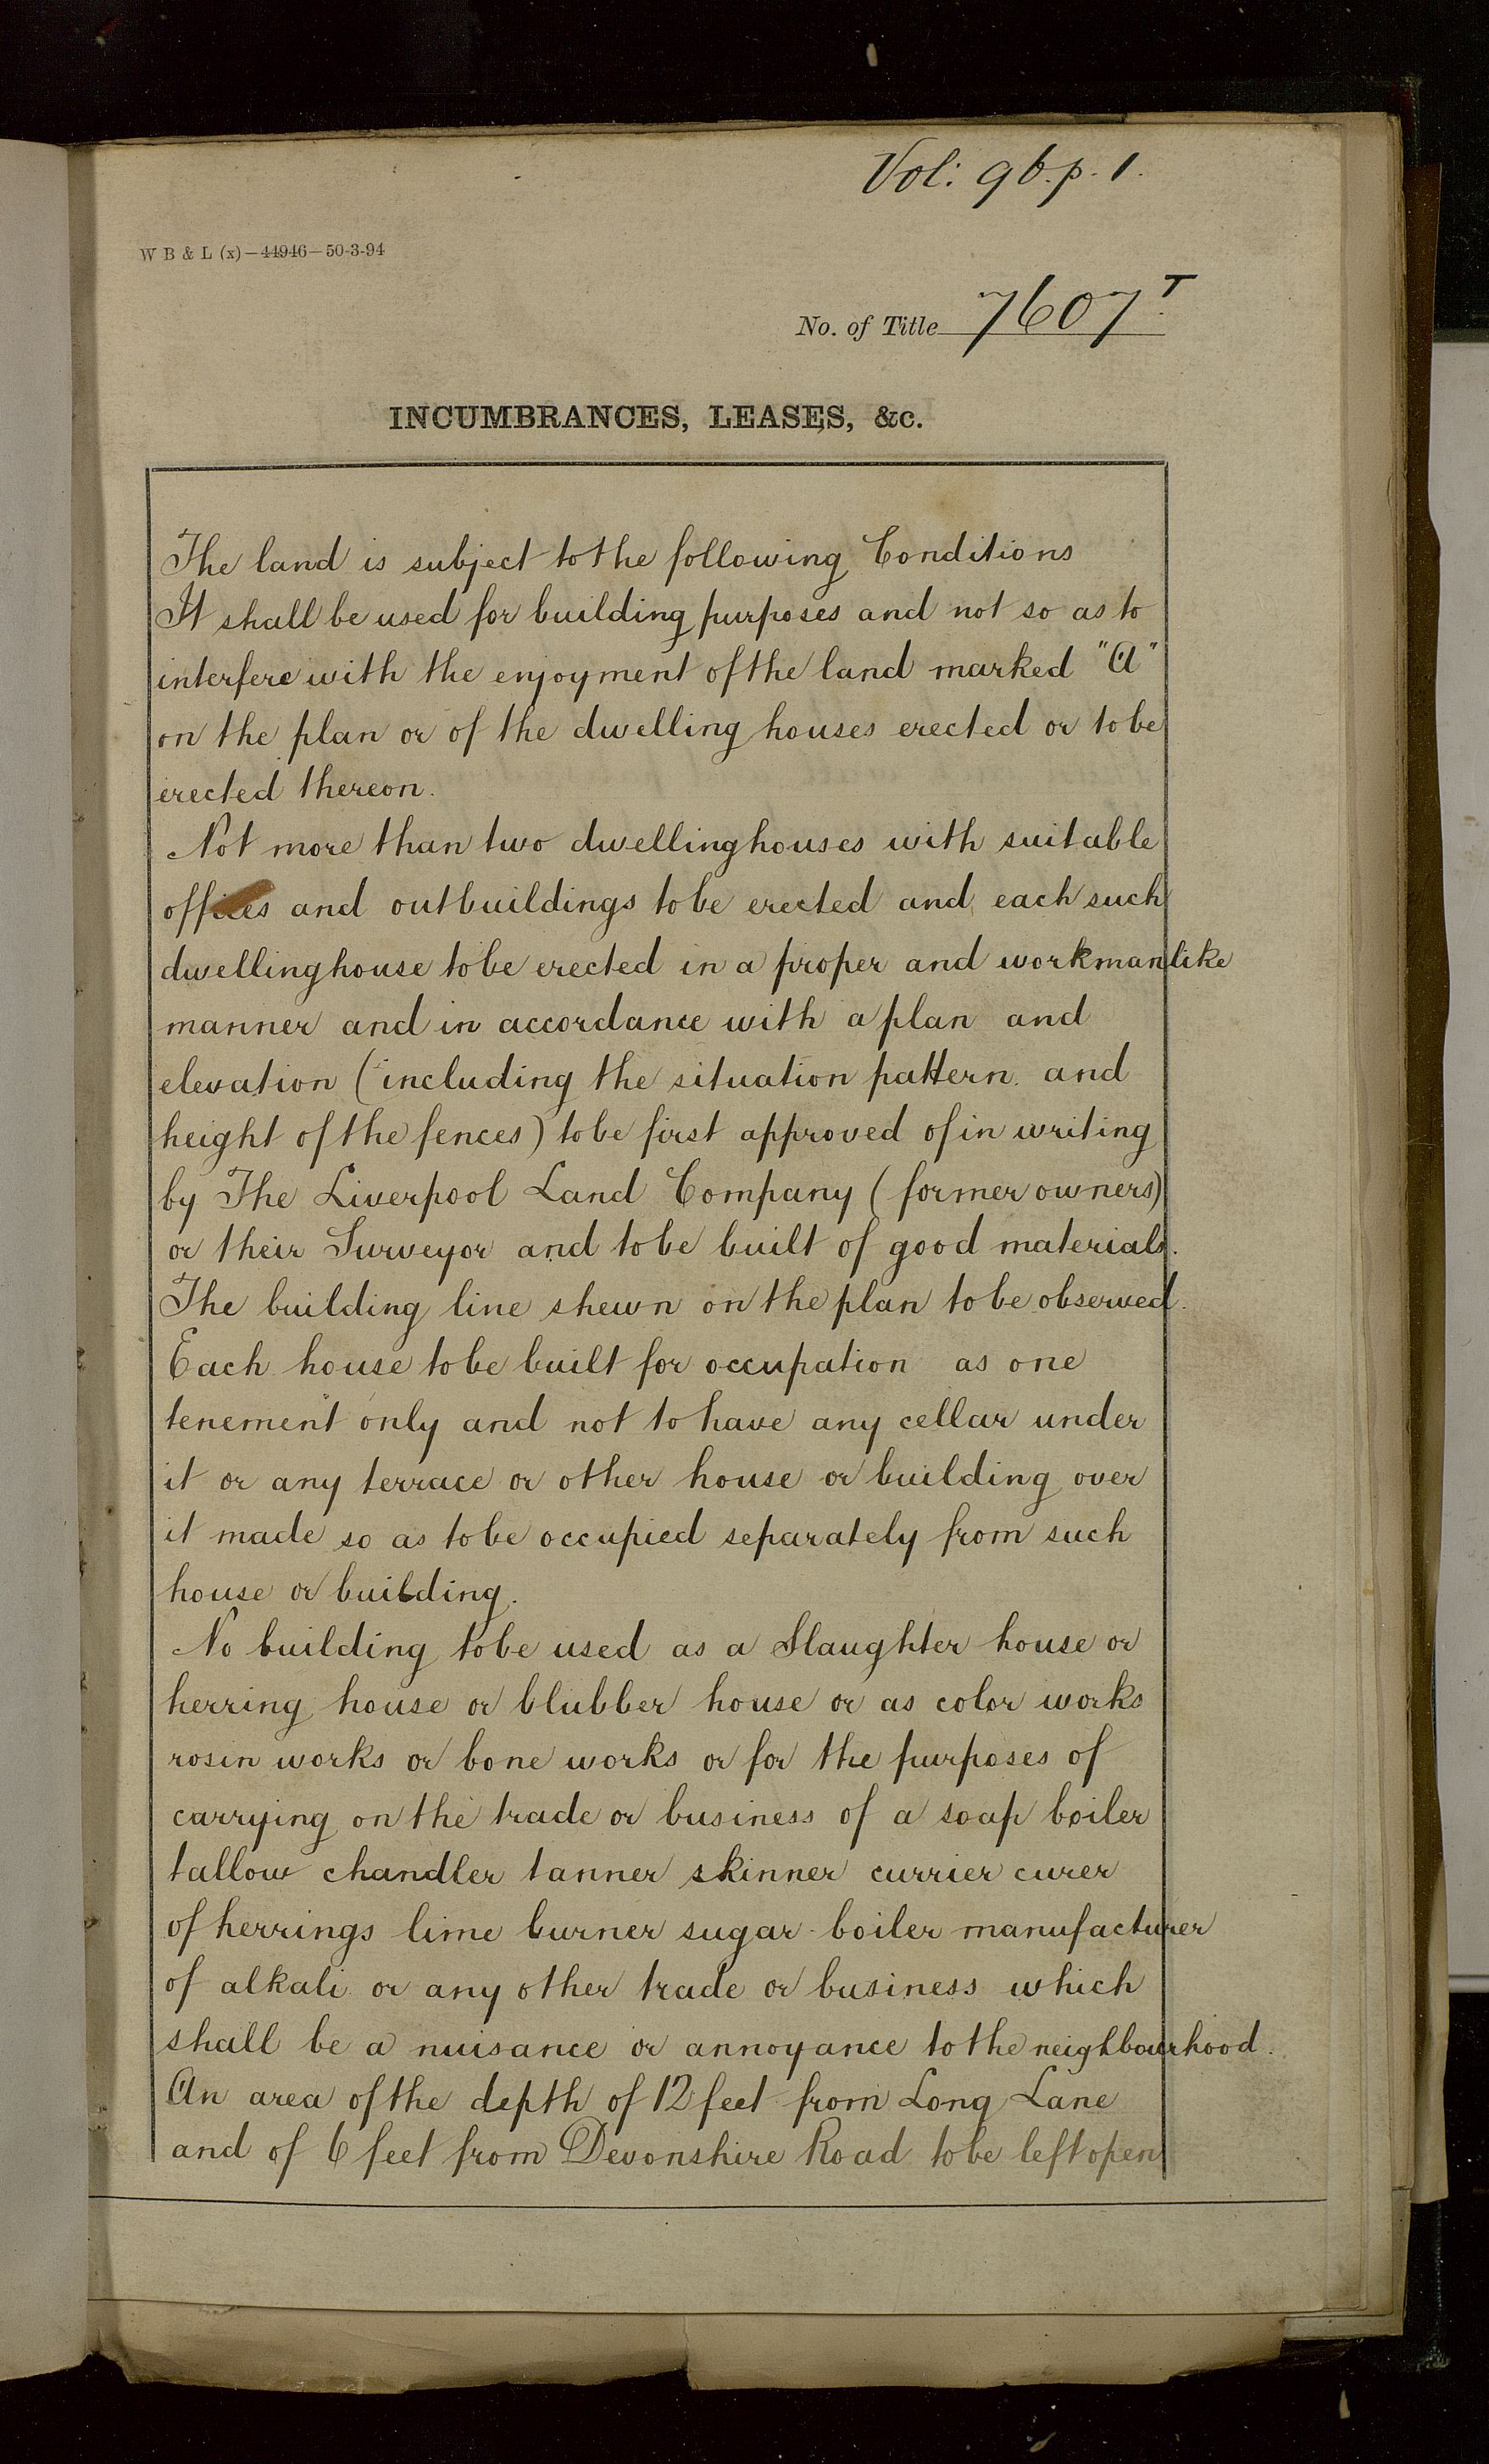 Vol: 96. p. 1.
W B & L (x)—44946—50-3-94
No. of Title 7607 T
INCUMBRANCES, LEASES, &c.
The land is subject to the following Conditions
It shall be used for building purposes and not so as to
interfere with the enjoyment of the land marked "A"
on the plan or of the dwelling houses erected or to be
erected thereon.
Not more than two dwellinghouses with suitable
offices and outbuildings to be erected and each such
dwellinghouse to be erected in a proper and workmanlike
manner and in accordance with a plan and
elevation (including the situation pattern and
height of the fences) to be first approved of in writing
by The Liverpool Land Company (former owners)
or their Surveyor and to be built of good materials.
The building line shewn on the plan to be observed.
Each house to be built for occupation as one
tenement only and not to have any cellar under
it or any terrace or other house or building over
it made so as to be occupied separately from such
house or building.
No building to be used as a Slaughter house or
herring house or blubber house or as color works
rosin works or bone works or for the purposes of
carrying on the trade or business of a soap boiler
tallow chandler tanner skinner currier curer
of herrings lime burner sugar boiler manufacturer
of alkali or any other trade or business which
shall be a nuisance or annoyance to the neighbourhood.
An area of the depth of 12 feet from Long Lane
and of 6 feet from Devonshire Road to be left open